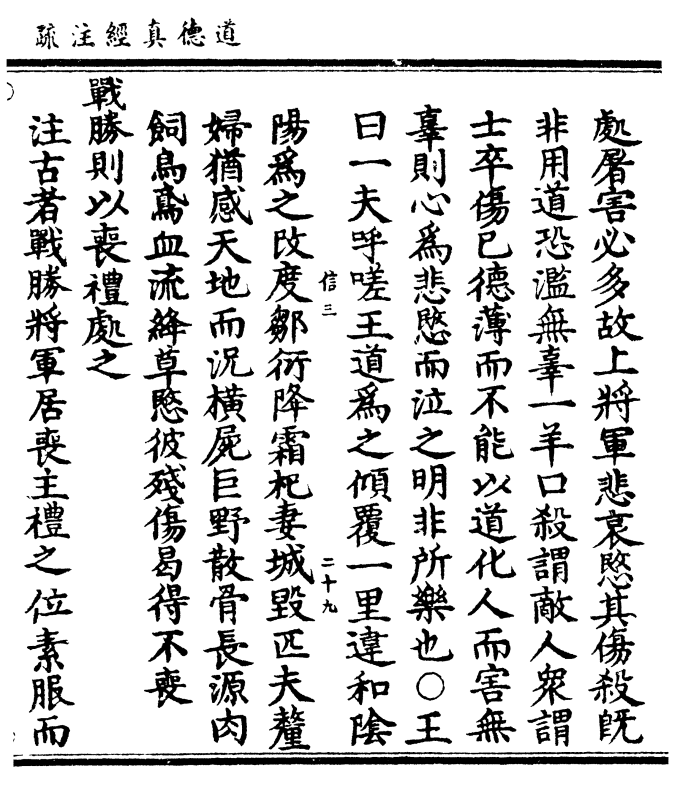 道德真經注疏
處屠害必多故上將軍悲哀愍其傷殺旣
非用道恐濫無辜一羊口殺謂敵人衆謂
士卒傷已德薄而不能以道化人而害無
辜則心爲悲愍而泣之明非所樂也○王
曰一夫呼嗟王道爲之傾覆一里違和陰
信三 二十九
陽爲之改度鄒衍降霜杞妻城毀匹夫釐
婦猶感天地而況橫屍巨野散骨長源肉
飼鳥鳶血流絳草愍彼殘傷曷得不喪
戰勝則以喪禮處之
注古者戰勝將軍居喪主禮之位素服而